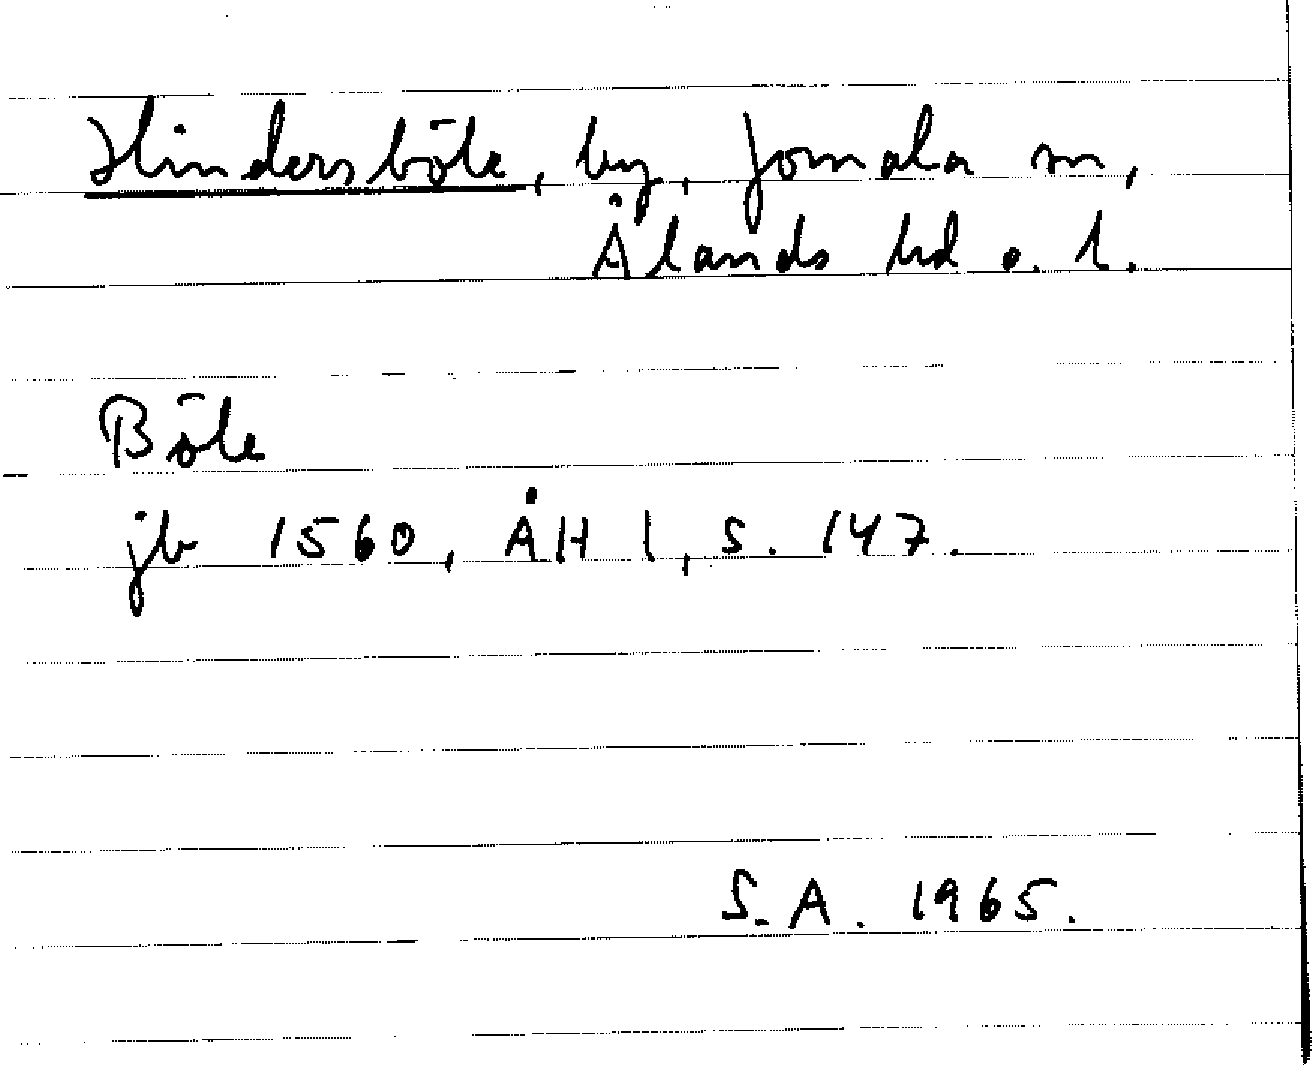 Hindersböle, by, Jomala sn,
Ålands hd o. l.
Böle
jb 1560, ÅH 1, s. 147.
S.A. 1965.